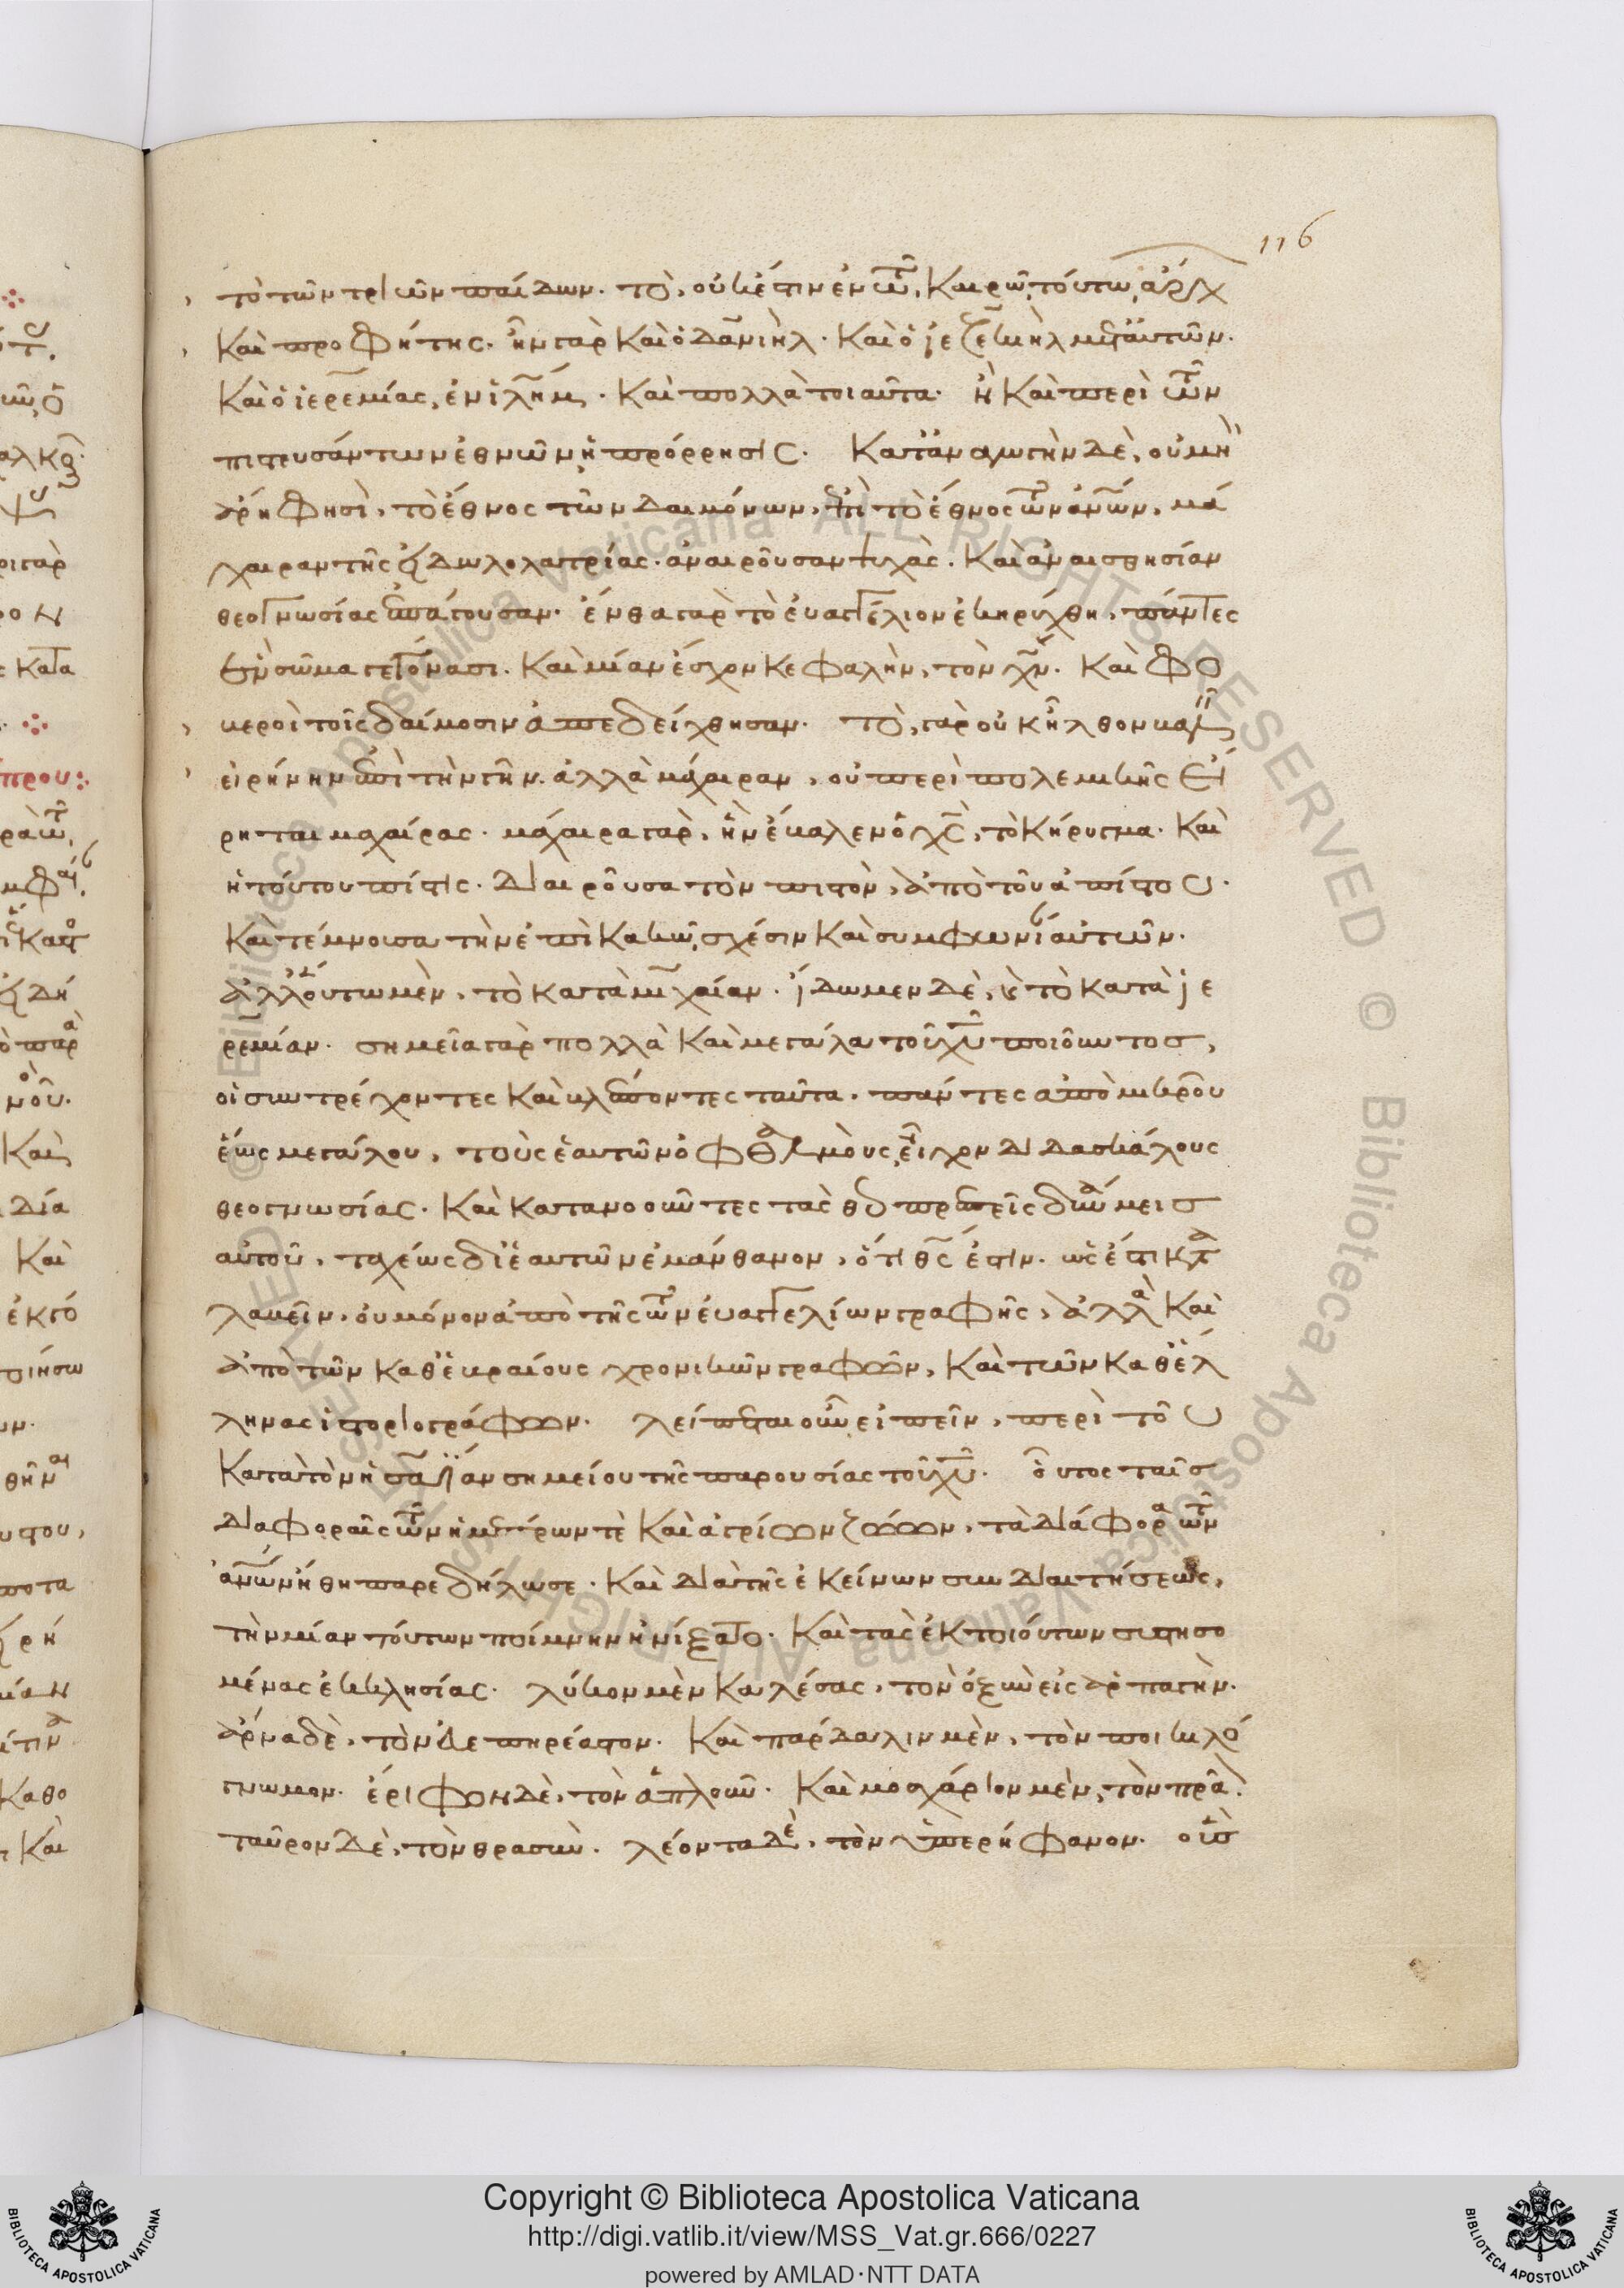 116
τὸ τῶν τριῶν παίδων. τὸ, οὐκ ἔστιν ἐν τῶ καιρῶ τούτω ἄρχ
καὶ προφήτης. ἦν γὰρ καὶ ὁ δανιὴλ. καὶ ὁ ἰεζεκιὴλ μετ' αὐτῶν.
καὶ ὁ ἱερεμίας, ἐν ἱλῆμ. καὶ πολλὰ τοιαῦτα. ἢ καὶ περὶ τῶν
πιστευσάντων ἐθνῶν ἡ πρόρρησις. κατ' ἀναγωγὴν δὲ, οὐ μὴ
ἄρη φησὶ, τὸ ἔθνος τῶν δαιμόνων, ἐπὶ τὸ ἔθνος τῶν ἀνῶν, μά
χαιραν τῆς εἰδωλολατρίας. ἀναιροῦσαν ψυχὰς. καὶ ἀναισθησίαν
θεογνωσίας ἐπάγουσαν. ἔνθα γὰρ τὸ εὐαγγέλιον ἐκηρύχθη, πάντες
ἓν σῶμα γεγόνασι. καὶ μίαν ἔσχον κεφαλὴν, τὸν χν. καὶ φο
βεροὶ τοῖς δαίμοσιν ἀπεδείχθησαν. τὸ, γὰρ οὐκ ἦλθον βαλεῖν
εἰρήνην ἐπὶ τὴν γῆν. ἀλλὰ μάχαιραν, οὐ περὶ πολεμικῆς εἴ
ρηται μαχαίρας. μάχαιρα γὰρ, ἣν ἔβαλεν ὁ χς, τὸ κήρυγμα. καὶ
ἡ τούτου πίστις. διαιροῦσα τὸν πιστὸν, ἀπὸ τοῦ ἀπίστου.
καὶ τέμνουσα τὴν ἐπὶ κακῶ σχέσιν καὶ συμφωνίαν αὐτῶν.
ἀλλ' οὕτω μὲν, τὸ κατὰ μιχαίαν. ἴδωμεν δὲ, καὶ τὸ κατὰ ἱε
ρεμίαν. σημεῖα γὰρ πολλὰ καὶ μεγάλα τοῦ χυ ποιοῦντος,
οἱ συντρέχοντες καὶ βλέποντες ταῦτα, πάντες ἀπὸ μικροῦ
ἕως μεγάλου, τοὺς ἑαυτῶν ὀφθαλμοὺς εἶχον διδασκάλους
θεογνωσίας. καὶ κατανοοῦντες τὰς θεοπρεπεῖς δυνάμεις
αὐτοῦ, ταχέως δι' ἑαυτῶν ἐμάνθανον, ὅτι θς ἐστιν. ὡς ἔστι κατα
λαβεῖν, οὐ μόνον ἀπὸ τῆς τῶν εὐαγγελίων γραφῆς, ἀλλὰ καὶ
ἀπὸ τῶν καθ' ἑβραίους χρονικῶν γραφῶν, καὶ τῶν καθ' ἕλ
ληνας ἱστοριογράφων. λείπεται οὖν εἰπεῖν, περὶ τοῦ
κατὰ τὸν ἡσαΐαν σημείου τῆς παρουσίας τοῦ χυ. οὗτος ταῖς
διαφοραῖς τῶν ἡμέρων τὲ καὶ ἀγρίων ζώων, τὰ διάφορα τῶν
ἀνῶν ἤθη παρεδήλωσε. καὶ διὰ τῆς ἐκείνων συνδιαιτήσεως,
τὴν μίαν τούτων ποίμνην ἠνίξατο. καὶ τὰς ἐκ τοιούτων συστησο
μένας ἐκκλησίας. λύκον μὲν καλέσας, τὸν ὀξὺν εἰς ἁρπαγὴν.
ἄρνα δὲ, τὸν ἀνεπηρέαστον. καὶ πάρδαλιν μὲν, τὸν ποικιλό
γνωμον. ἔριφον δὲ, τὸν ἁπλοῦν. καὶ μοσχάριον μὲν, τὸν πρᾶον.
ταῦρον δὲ, τὸν θρασὺν. λέοντα δὲ, τὸν ὑπερήφανον.
Copyright © Biblioteca Apostolica Vaticana
http://digi.vatlib.it/view/MSS_Vat.gr.666/0227
powered by AMLAD·NTT DATA
BIBLIOTECA APOSTOLICA VATICANA
BIBLIOTECA APOSTOLICA VATICANA